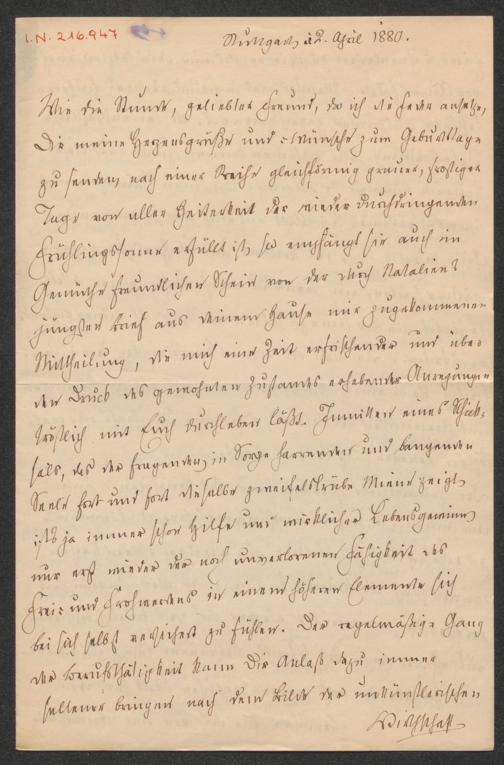 I.N. 216.947
Stuttgart 12. April 1880.
Wie die Stunde, geliebter Freund, da ich die Feder ansetze,
Dir meine Herzensgrüße und =Wünsche zum Geburtstage
zu senden, nach einer Reihe gleichförmig grauer, frostiger
Tage von aller Heiterkeit der wieder durchdringenden
Frühlingssonne erfüllt ist, so empfängt sie auch im
Gemüthe freundlichen Schein von der durch Nataliens
jüngsten Brief aus Deinem Hause mir zugekommenen
Mittheilung, die mich eine Zeit erfrischender und über
den Druck des gewohnten Zustandes erhebender Anregungen
tröstlich mit Euch durchleben läßt. Inmitten eines Schick=
sals, das der fragenden, in Sorge harrenden und bangenden
Seele fort und fort dieselbe zweifelstrübe Miene zeigt,
ists ja immer schon Hilfe und wirklicher Lebensgewinn,
nur erst wieder der noch unverlorenen Fähigkeit des
Frei= und Frohwerdens in einem höheren Elemente sich
bei sich selbst versichert zu fühlen. Der regelmäßige Gang
der Berufsthätigkeit kann Dir Anlaß dazu immer
seltener bringen nach dem Bilde der unkünstlerischen
Wirthschaft